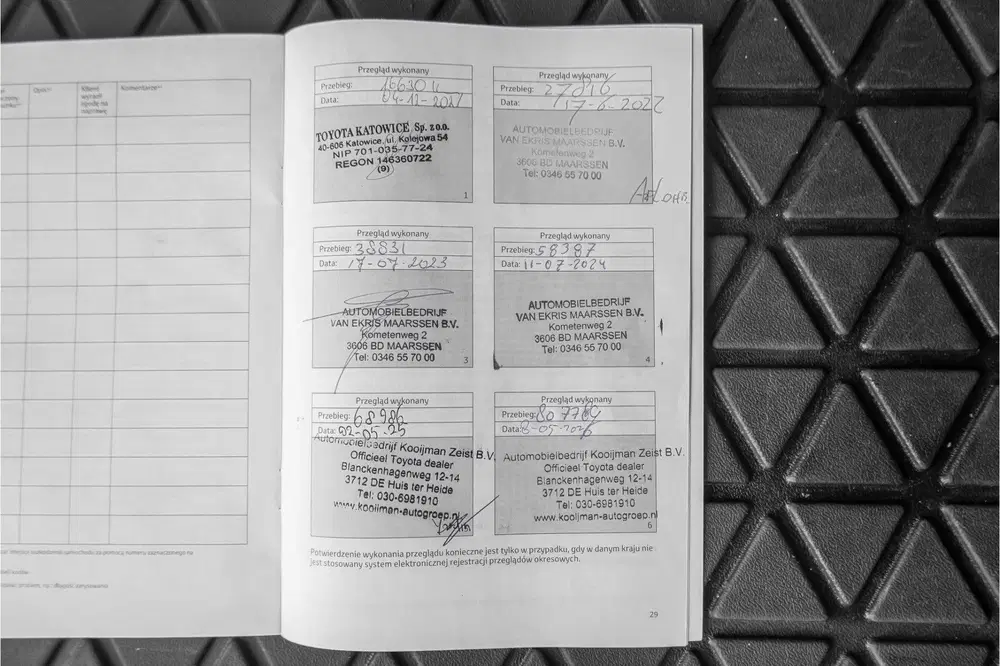 Opis**
Komentarze**
Przegląd wykonany
Przebieg:
Data: 04-12-2021
TOYOTA KATOWICE Sp. z o.o.
40-606 Katowice, ul. Kolejowa 54
NIP 701-035-77-24
REGON 146360722
(9)
1
Przegląd wykonany
Przebieg: 27816
Data: 17-6-2022
AUTOMOBIELBEDRIJF
VAN EKRIS MAARSSEN B.V.
Kometenweg 2
3606 BD MAARSSEN
Tel: 0346 55 70 00
Przegląd wykonany
Przebieg: 38831
Data: 17-07-2023
AUTOMOBIELBEDRIJF
VAN EKRIS MAARSSEN B.V.
Kometenweg 2
3606 BD MAARSSEN
Tel: 0346 55 70 00
3
Przegląd wykonany
Przebieg: 58387
Data: 11-07-2024
AUTOMOBIELBEDRIJF
VAN EKRIS MAARSSEN B.V.
Kometenweg 2
3606 BD MAARSSEN
Tel: 0346 55 70 00
4
Przegląd wykonany
Przebieg: 68986
Data: 02-05-25
Automobielbedrijf Kooijman Zeist B.V.
Officieel Toyota dealer
Blanckenhagenweg 12-14
3712 DE Huis ter Heide
Tel: 030-6981910
www.kooijman-autogroep.nl
Przegląd wykonany
Przebieg:
Data: 8-05-2026
Automobielbedrijf Kooijman Zeist B.V.
Officieel Toyota dealer
Blanckenhagenweg 12-14
3712 DE Huis ter Heide
Tel: 030-6981910
www.kooijman-autogroep.nl
6
Potwierdzenie wykonania przeglądu konieczne jest tylko w przypadku, gdy w danym kraju nie
jest stosowany system elektronicznej rejestracji przeglądów okresowych.
29